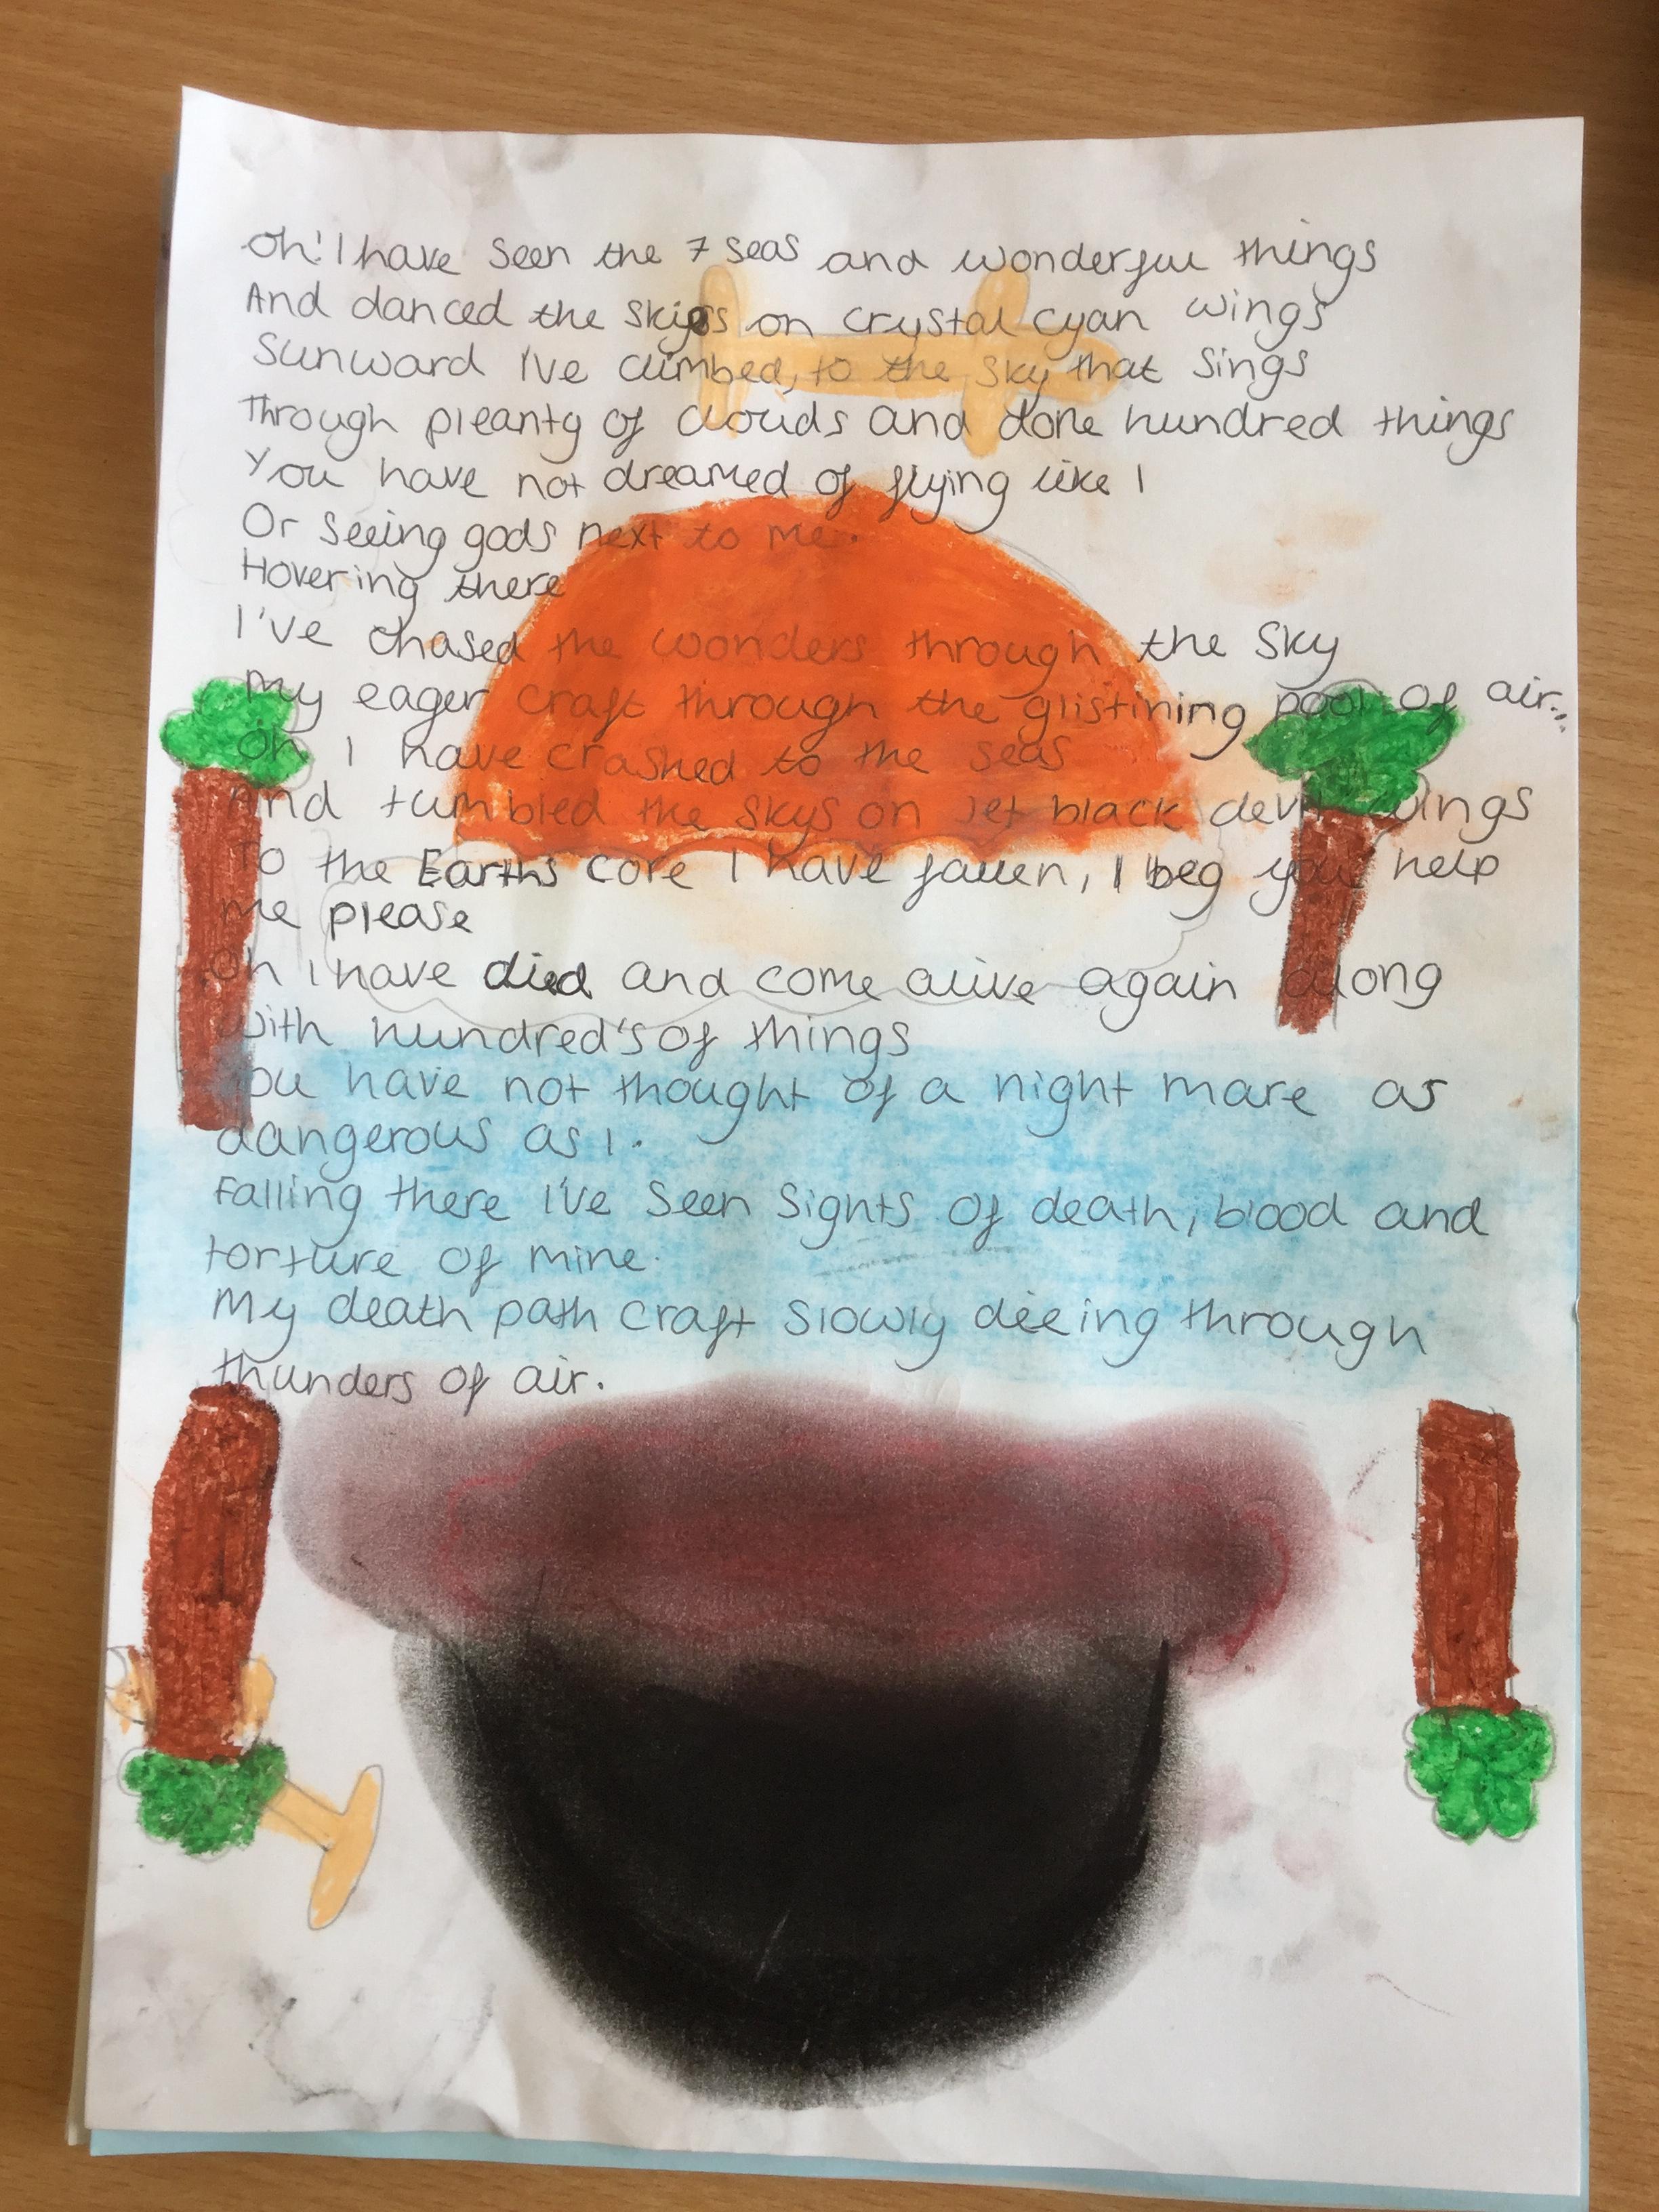 Oh! I have seen the 7 seas and wonderful things
And danced the skys on crystal cyan wings
Sunward I've climbed, to the sky that sings
Through pleanty of clouds and done hundred things
You have not dreamed of flying like I
Or seeing gods next to me.
Hovering there
I've chased the wonders through the sky
My eager craft through the glistining pool of air...
Oh I have crashed to the seas
And tumbled the skys on jet black devil wings
To the Earths core I have fallen, I beg you help
me please
Oh I have died and come alive again along
with hundred's of things
You have not thought of a night mare as
dangerous as I.
Falling there I've seen sights of death, blood and
torture of mine.
My death path craft slowly dieing through
thunders of air.